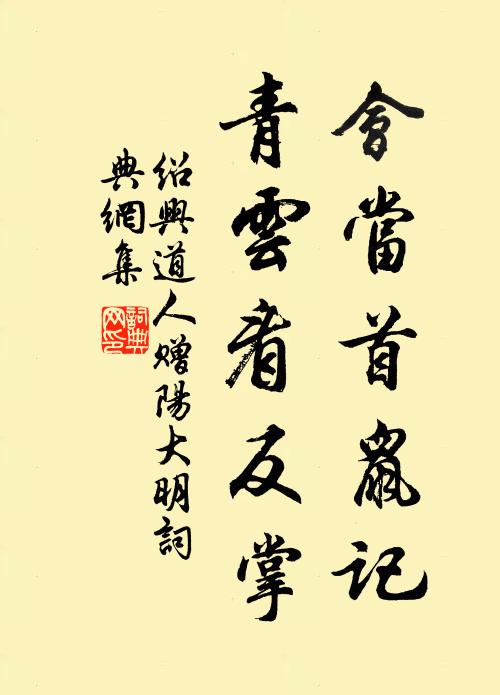 會當首鼠記
青雲看反掌
紹興道人贈陽大明詞
典網集
詞典網印